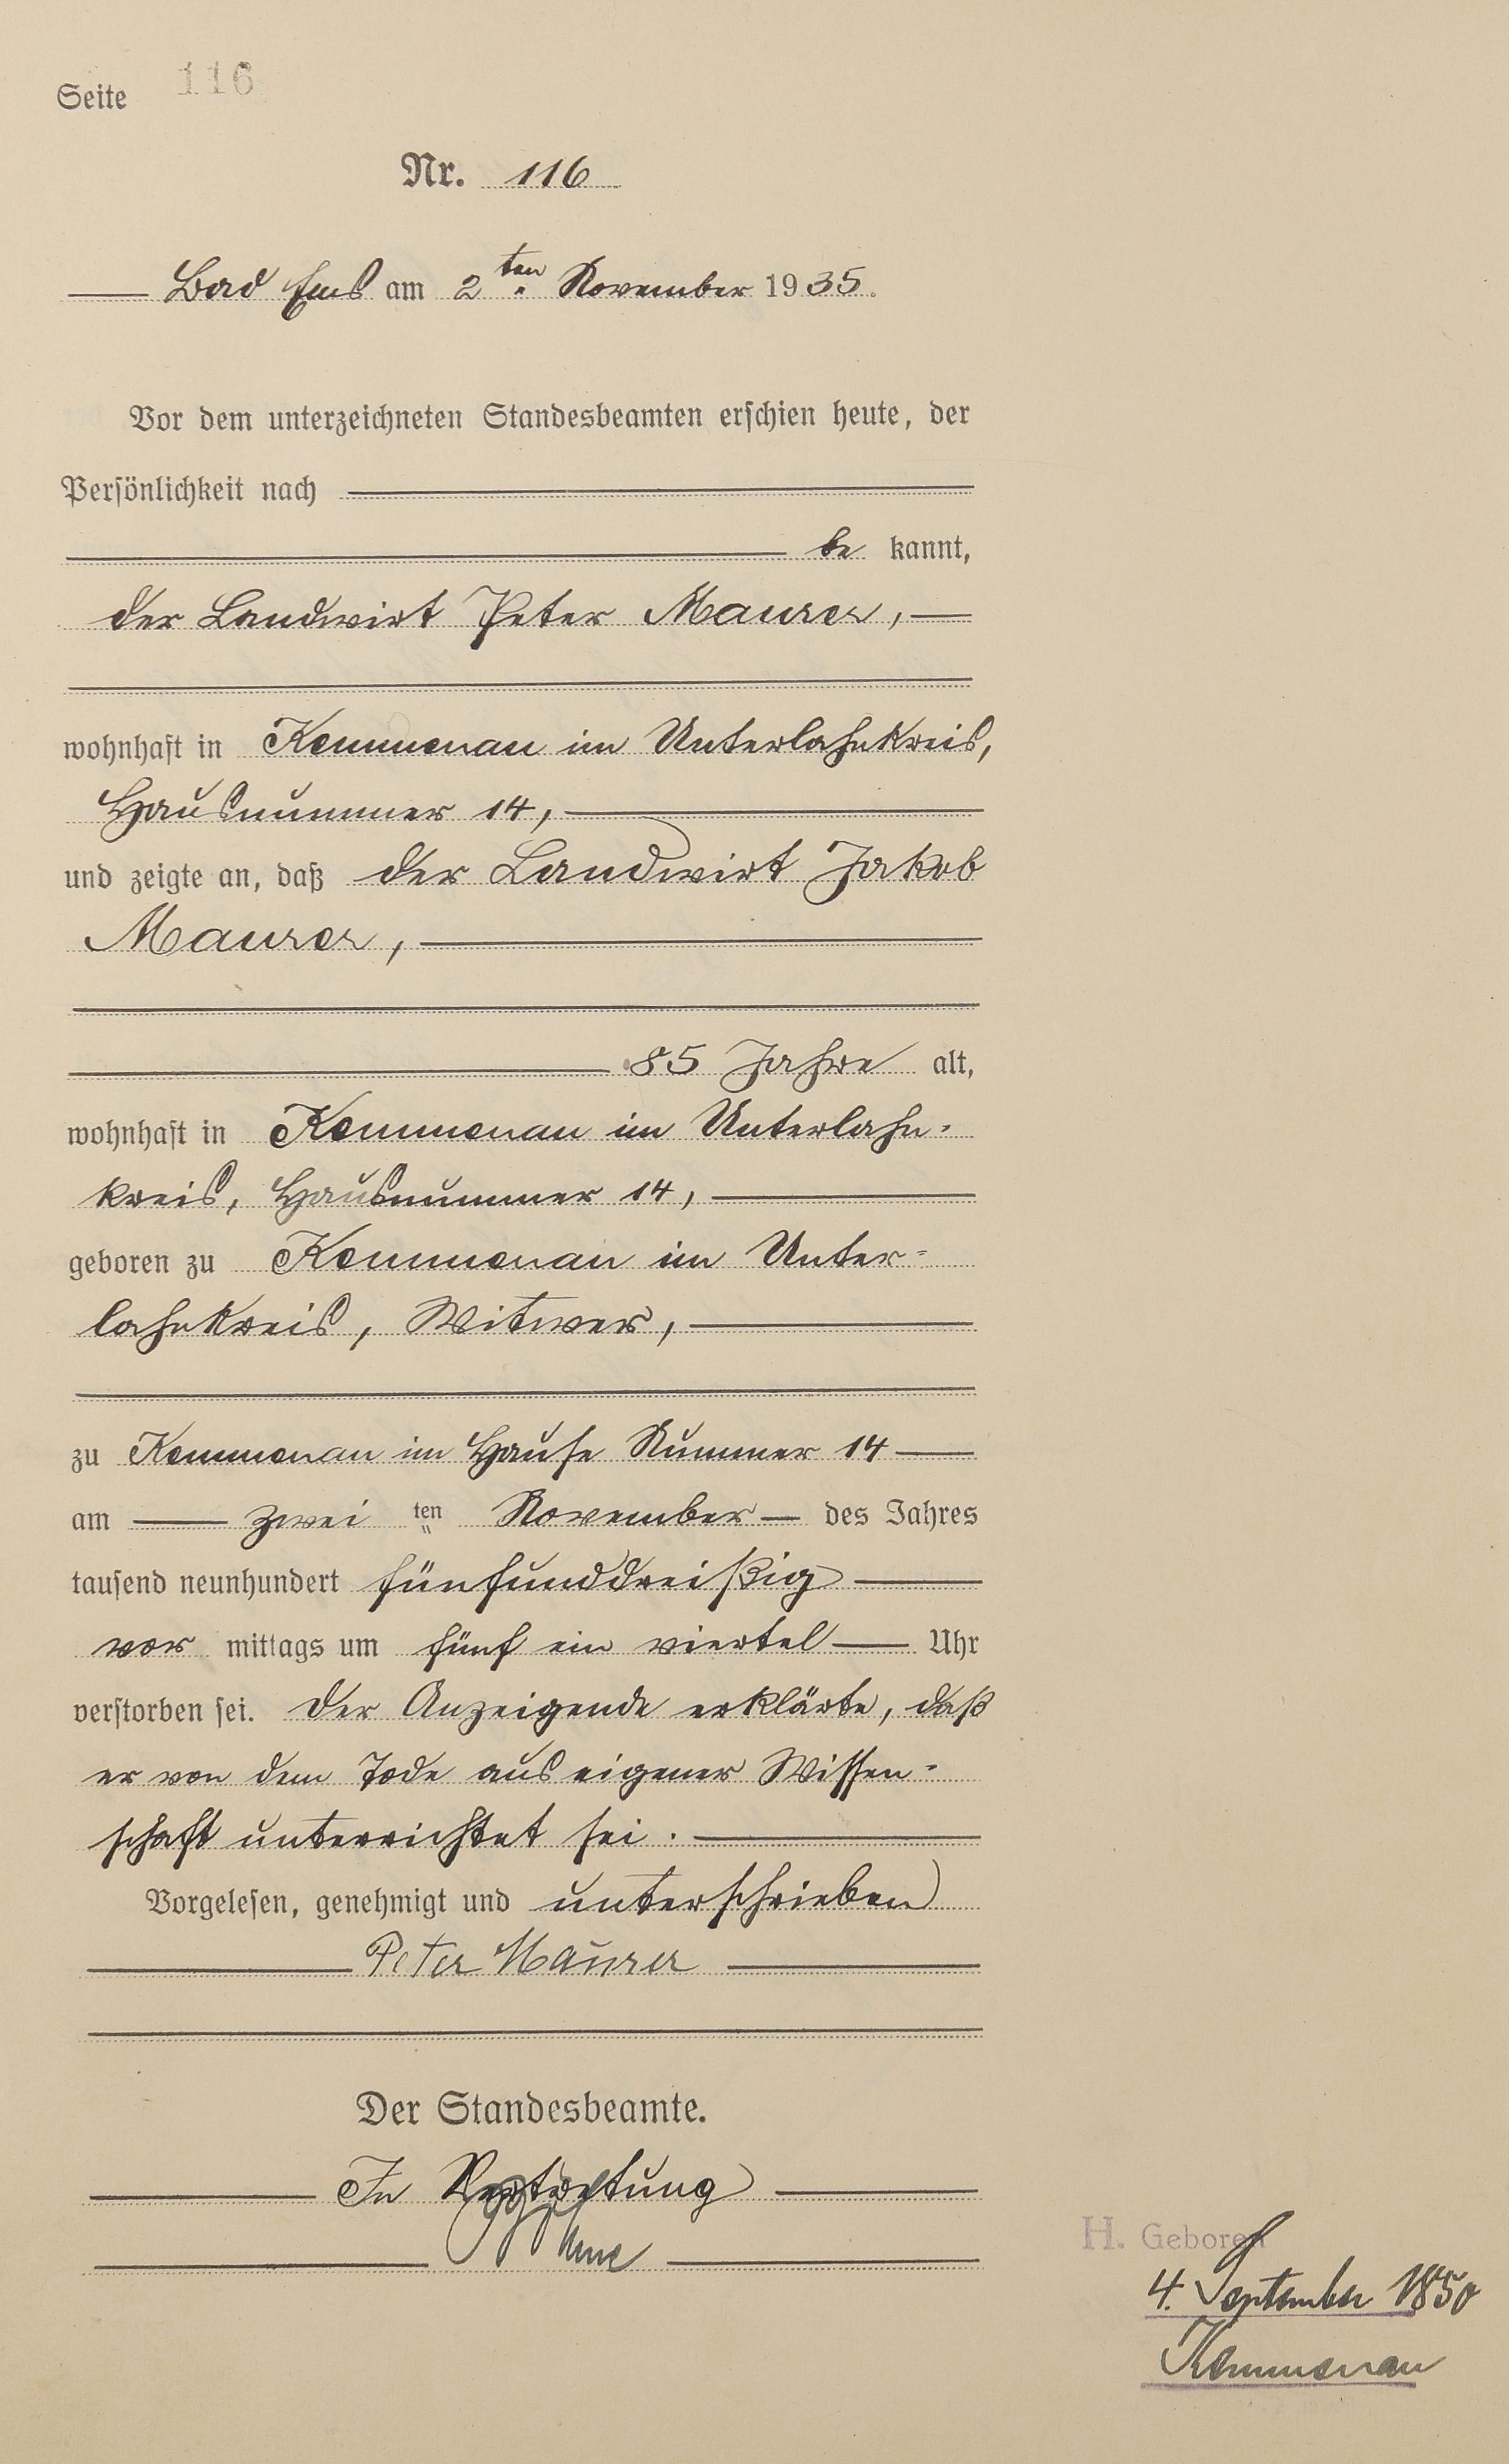 Seite 116
Nr. 116
Bad Ems am 2ten November 1935.
Vor dem unterzeichneten Standesbeamten erschien heute, der
Persönlichkeit nach
be kannt,
der Landwirt Peter Maurer,
wohnhaft in Kemmenau im Unterlahnkreis,
Hausnummer 14,
und zeigte an, daß der Landwirt Jakob
Maurer,
85 Jahre alt,
wohnhaft in Kemmenau im Unterlahn-
kreis, Hausnummer 14,
geboren zu Kemmenau im Unter-
lahnkreis, Witwer,
zu Kemmenau im Hause Nummer 14
am zwei ten November des Jahres
tausend neunhundert fünfunddreißig
vor mittags um fünf ein viertel Uhr
verstorben sei. Der Anzeigende erklärte, daß
er von dem Tode aus eigener Wissen-
schaft unterrichtet sei.
Vorgelesen, genehmigt und unterschrieben
Peter Maurer
Der Standesbeamte.
In Vertretung
H. Geboren
4. September 1850
Kemmenau